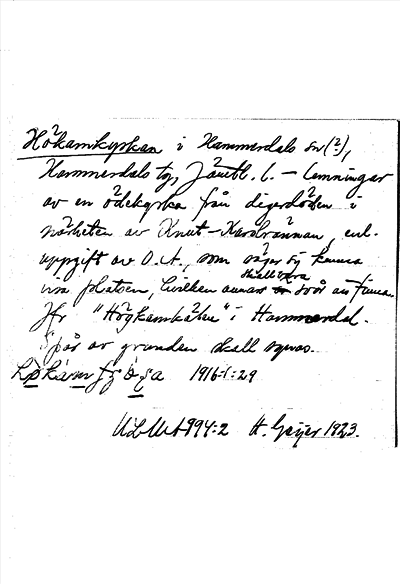 Hökamkyrkan i Hammerdals sn (?),
Hammerdals tg, Jämtl. l. – Lämningar
av en ödekyrka från digerdöden i
närheten av Knut-Karlsvännan, enl.
uppgift av O.A., som säger sig kunna
visa platsen, hvilken annars skall vara svår att finna.
Jfr "Högkamkälen" i Hammerdal.
Spår av grunden skall synas.
1916-1:29
ULMA 994:2 H. Geijer 1923.